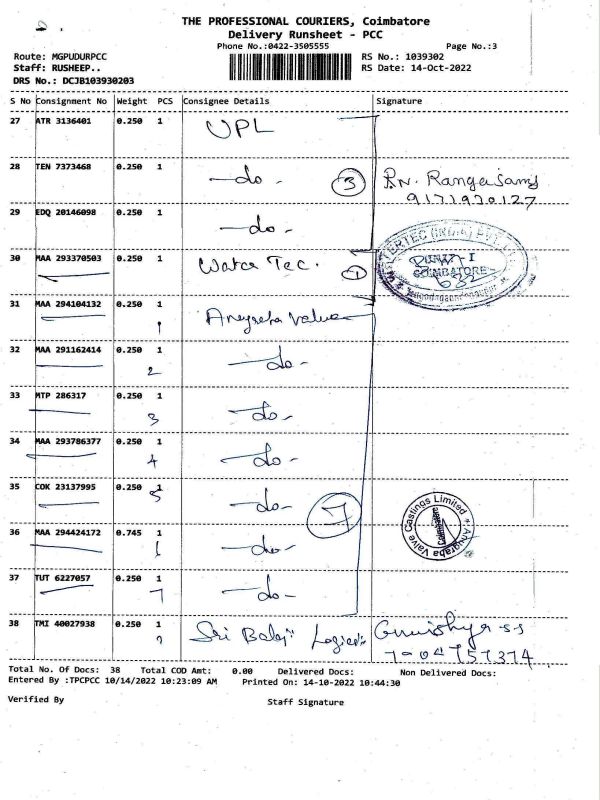 THE PROFESSIONAL COURIERS, Coimbatore
Delivery Runsheet - PCC
Phone No.:0422-3505555 Page No.:3
Route: MGPUDURPCC RS No.: 1039302
Staff: RUSHEEP.. RS Date: 14-Oct-2022
DRS No.: DCJB103930203
S No Consignment No Weight PCS Consignee Details Signature
27 ATR 3136401 0.250 1 UPL
28 TEN 7373468 0.250 1 -do- 3 RN. Rangasamy
9171920127
29 EDQ 20146098 0.250 1 -do-
30 MAA 293370503 0.250 1 Water Tec. 1
UNIT-I
COIMBATORE
31 MAA 294104132 0.250 1 Anugraha Valve
1
32 MAA 291162414 0.250 1 -do-
2
33 MTP 286317 0.250 1 -do-
3
34 MAA 293786377 0.250 1 -do-
4
35 COK 23137995 0.250 1 -do-
5
7
Anugraha Valve Castings Limited
Coimbatore
36 MAA 294424172 0.745 1 -do-
6
37 TUT 6227057 0.250 1 -do-
7
38 TMI 40027938 0.250 1 Sri Balaji
7904757374
Total No. Of Docs: 38 Total COD Amt: 0.00 Delivered Docs: Non Delivered Docs:
Entered By :TPCPCC 10/14/2022 10:23:09 AM Printed On: 14-10-2022 10:44:30
Verified By Staff Signature